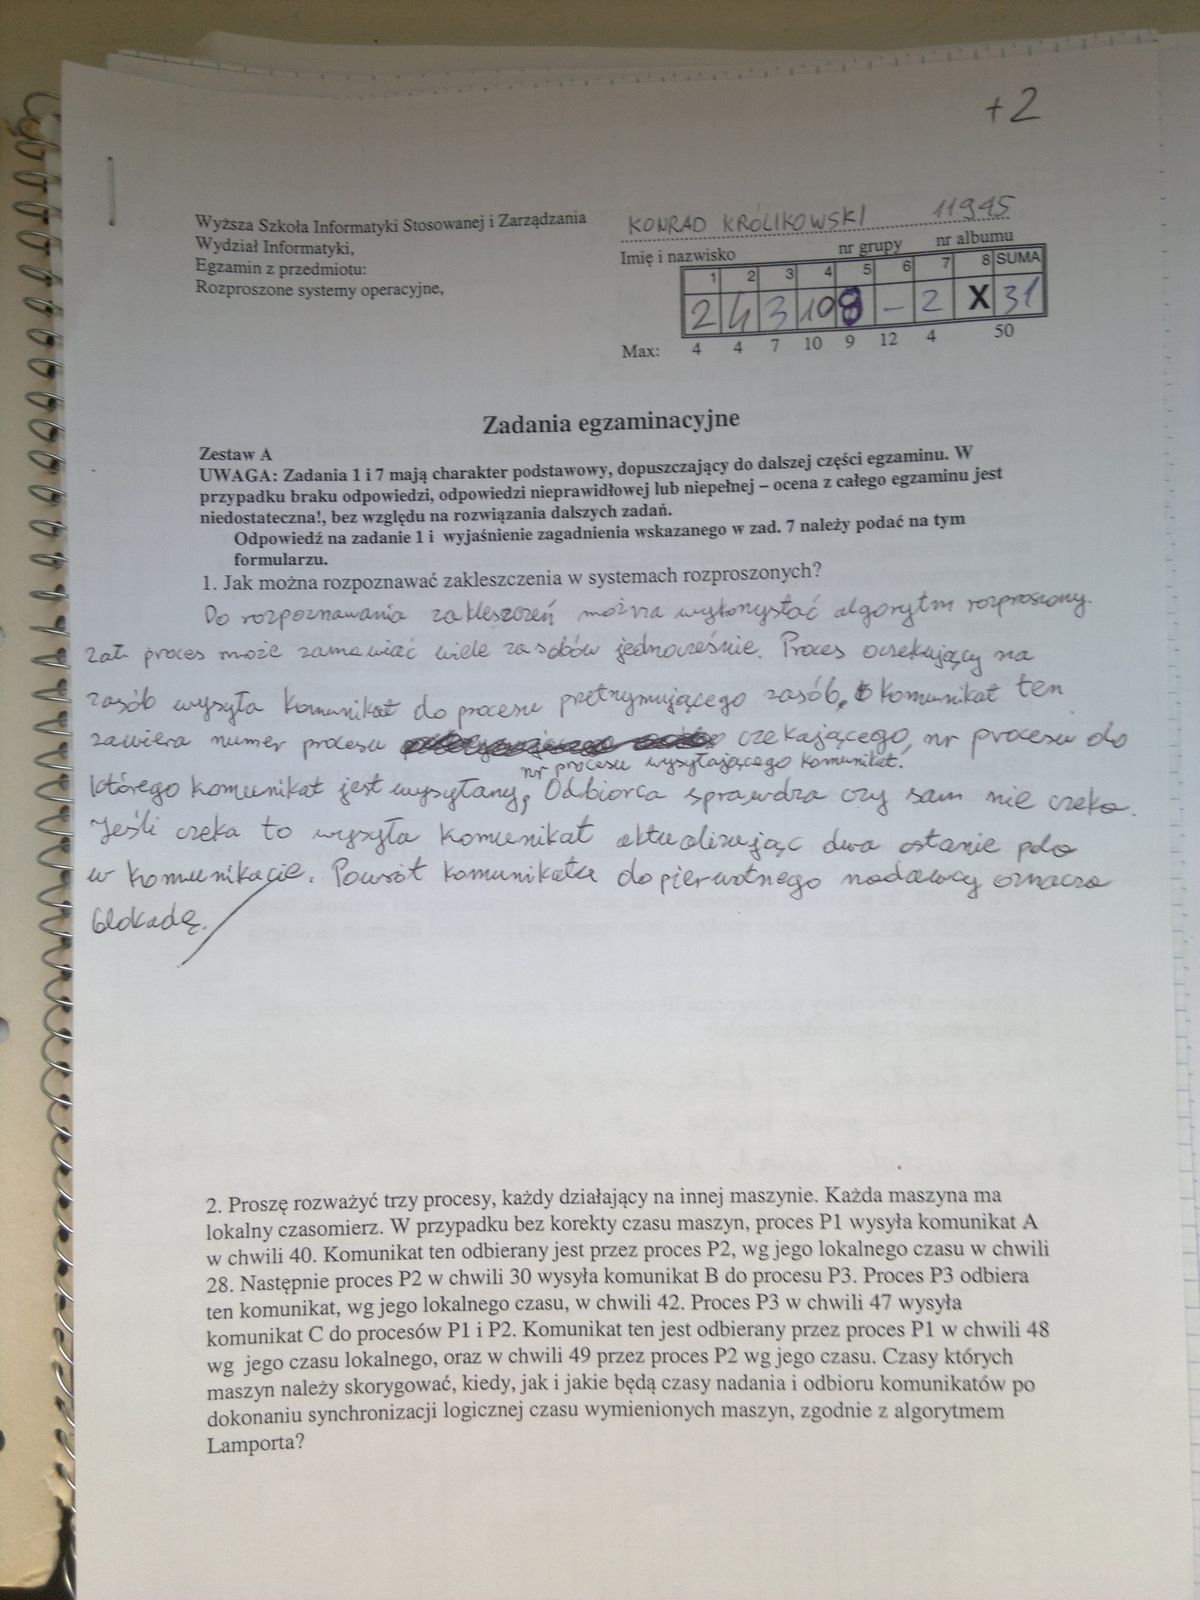 +2
Wyższa Szkoła Informatyki Stosowanej i Zarządzania
Wydział Informatyki,
Egzamin z przedmiotu:
Rozproszone systemy operacyjne,
KONRAD KRÓLIKOWSKI 11945
Imię i nazwisko nr grupy nr albumu
1 2 3 4 5 6 7 8 SUMA
2 4 3 10 8 - 2 X 31
Max: 4 4 7 10 9 12 4 50
Zadania egzaminacyjne
Zestaw A
UWAGA: Zadania 1 i 7 mają charakter podstawowy, dopuszczający do dalszej części egzaminu. W
przypadku braku odpowiedzi, odpowiedzi nieprawidłowej lub niepełnej – ocena z całego egzaminu jest
niedostateczna!, bez względu na rozwiązania dalszych zadań.
Odpowiedź na zadanie 1 i wyjaśnienie zagadnienia wskazanego w zad. 7 należy podać na tym
formularzu.
1. Jak można rozpoznawać zakleszczenia w systemach rozproszonych?
Do rozpoznawania zakleszczeń można wykorzystać algorytm rozproszony.
Zał. proces może zamawiać wiele zasobów jednocześnie. Proces oczekujący na
zasób wysyła komunikat do procesu przetrzymującego zasób, komunikat ten
zawiera numer procesu czekającego, nr procesu do
nr procesu wysyłającego komunikat.
którego komunikat jest wysyłany, Odbiorca sprawdza czy sam nie czeka.
Jeśli czeka to wysyła komunikat aktualizując dwa ostanie pola
w komunikacie. Powrót komunikatu do pierwotnego nadawcy oznacza
blokadę.
2. Proszę rozważyć trzy procesy, każdy działający na innej maszynie. Każda maszyna ma
lokalny czasomierz. W przypadku bez korekty czasu maszyn, proces P1 wysyła komunikat A
w chwili 40. Komunikat ten odbierany jest przez proces P2, wg jego lokalnego czasu w chwili
28. Następnie proces P2 w chwili 30 wysyła komunikat B do procesu P3. Proces P3 odbiera
ten komunikat, wg jego lokalnego czasu, w chwili 42. Proces P3 w chwili 47 wysyła
komunikat C do procesów P1 i P2. Komunikat ten jest odbierany przez proces P1 w chwili 48
wg jego czasu lokalnego, oraz w chwili 49 przez proces P2 wg jego czasu. Czasy których
maszyn należy skorygować, kiedy, jak i jakie będą czasy nadania i odbioru komunikatów po
dokonaniu synchronizacji logicznej czasu wymienionych maszyn, zgodnie z algorytmem
Lamporta?